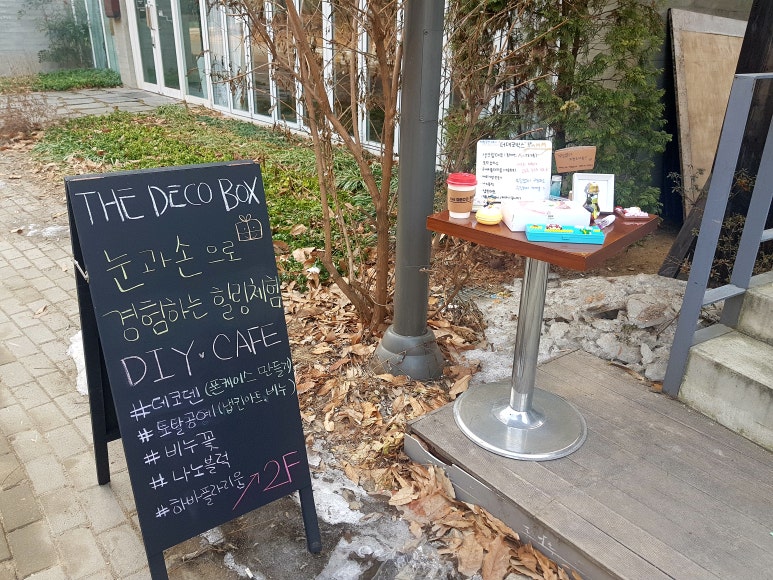 THE DECO BOX
눈과 손으로
경험하는 힐링체험
DIY·CAFE
#데코덴 (폰케이스 만들기)
#토탈공예 (냅킨아트, 비누)
#비누꽃
#나노블럭
#하바플라리움
↗2F
THE DECO BOX